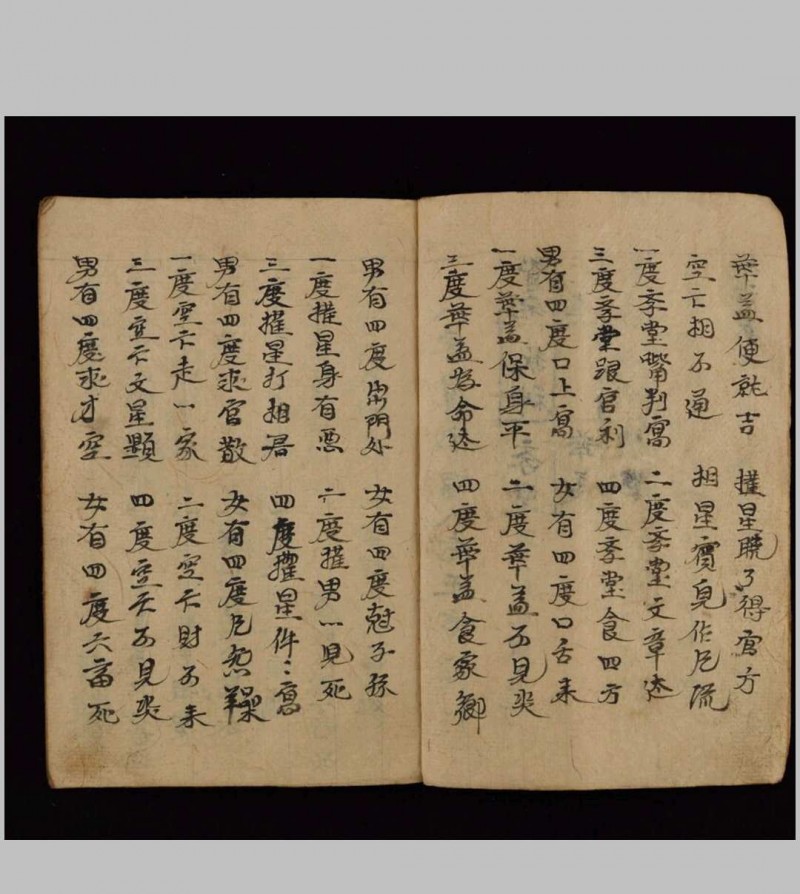 華盖便就吉 摧星晓了得官方
空亡相不通 相星實見作尼流
一度季堂嘴判寫 二度季堂文章达
三度季堂跟官利 四度季堂食四方
男有四度口上寫 女有四度口舌来
一度華盖保身平 二度華盖不見災
三度華盖为命达 四度華盖食家鄉
男有四度出門处 女有四度尅子孫
一度摧星身有悪 二度摧男一見死
三度摧星打相君 四度摧星件々寫
男有四度求官散 女有四度尼怨
一度空亡走一家 二度空亡財不来
三度空亡文星顯 四度空亡不見災
男有四度求才空 女有四度六畜死